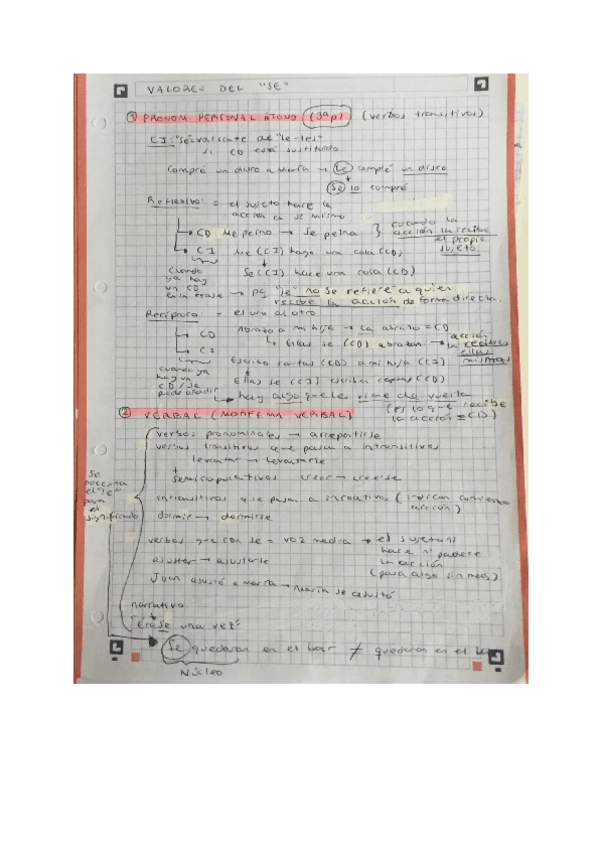 VALORES DEL "SE"
① PRONOM PERSONAL ÁTONO (3ªp) (verbos transitivos)
CI: "se"= variante de "le-les"
si CD está sustituido
Compré un disco a María → Le compré un disco
Se lo compré
Reflexivo: = el sujeto hace la
acción a sí mismo
CD Me peino → Se peina } cuando la
acción la recibe
el propio
sujeto
CI Me (CI) hago una cola (CD)
Se (CI) hace una cola (CD)
Cuando
ya hay
un CD
en la frase → pq "se" no se refiere a quien
recibe la acción de forma directa.
Recíproco: = el uno al otro
CD Abrazo a mi hija → La abrazo = CD
Ellas se (CD) abrazan → acción
la reciben
ellas
mismas
CI Escribo cartas (CD) a mi hija (CI)
Ellas se (CI) escriben cartas (CD)
cuando ya
hay un
CD / se
puede añadir
hay algo que les viene de vuelta
(es lo q- € recibe
la acción = CD)
② VERBAL (MORFEMA VERBAL)
verbos pronominales → arrepentirse
verbos transitivos que pasan a intransitivos
levantar → levantarse
semicopulativos creer → creerse
intransitivos que pasan a incoativos (indican comienzo
acción)
dormir → dormirse
verbos que con se = voz media → el sujeto ni
hace ni padece
la acción
(para algo sin más)
asustar → asustarse
Juan asustó a María → María se asustó
narrativo
"Érase una vez"
Se
necesita
el "se"
para
el
significado
Se quedaron en el bar ≠ quedaron en el ba
Núcleo